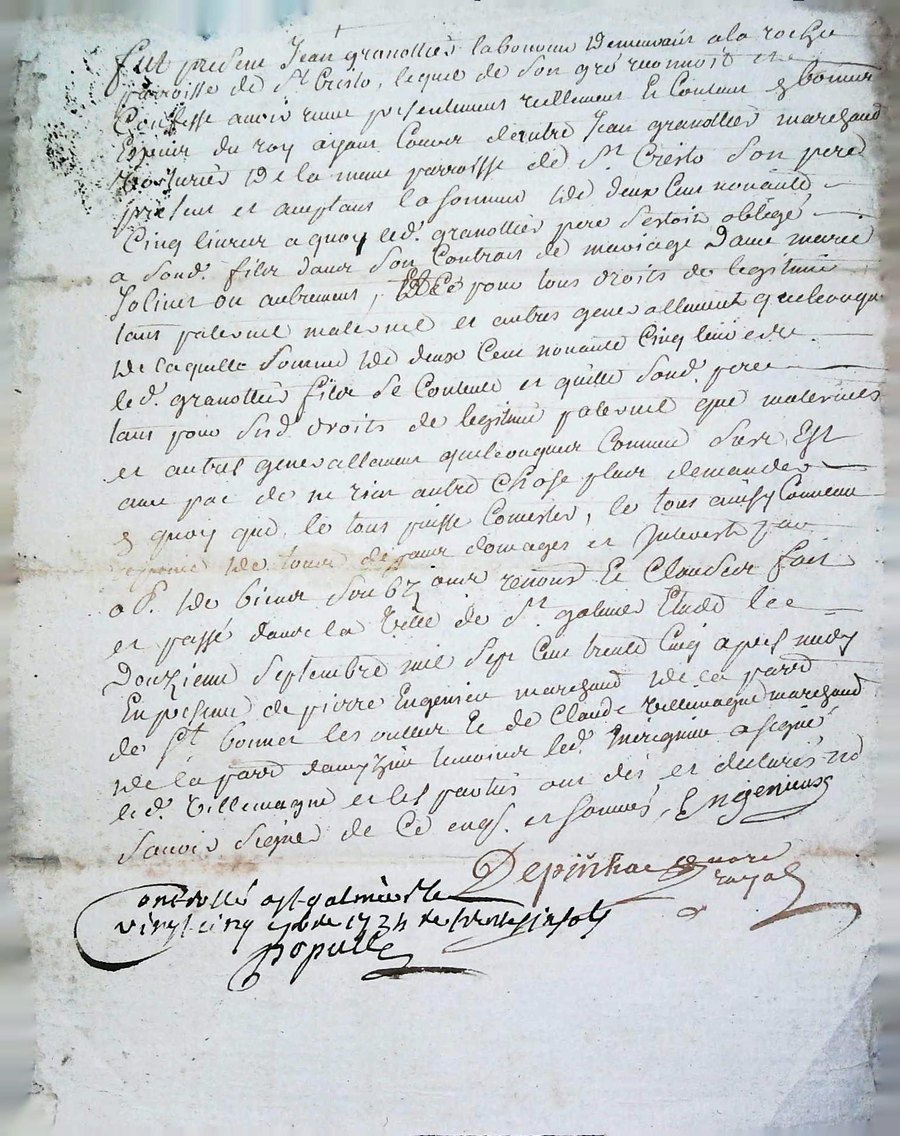 fut present Jean granottier laboureur demeurant a la roche
parroisse de St Cristo, lequel de son gré reconnoit et
Confesse avoir reçue presentement reellement et Contant en bonnes
Especes du roy ayant Cours dautre Jean granottier marchand
de la meme parroisse de St Cristo son pere
present et aceptant la somme de deux Cent nonante
Cinq livres a quoy led. granottier pere sestoit oblegé
a sond. filz dans son Contrat de mariage Dauec marie
ou autrement, et Ce pour tous droits de legitime
tant paternel maternel et autres generallement quelconque
de laquelle somme de deux Cent nonante Cinq livres
led. granottier filz se Contente et quitte sond. pere
tant pour susd. droits de legitime paternel que maternels
et autres generallement quelconques Comme dusse Est
auec pac de ne rien autre chose plus demander
a quoy que le tous puisse Consister, le tous ainsy Conuenu
de tous despans domages et Interest par
o P. de biens soubz aux renons. et Clauses fait
et passé dans la Ville de St galmier Etude le
Douzieme Septembre mil Sept Cent trente Cinq apres midy
En presence de pierre Engenieu marchand de la parre
de St bonnet les oulles et de Claude Villemagne marchand
de la parre temoins led. a signé
led. Villemagne et les parties ont dit et declarés ne
sauoir signer de Ce enqs. et sommés, Engenieux
Depinhac nore
royal
Controllé a st galmier le
vingt cinq 7bre 1735 Rc trente six sols
populle